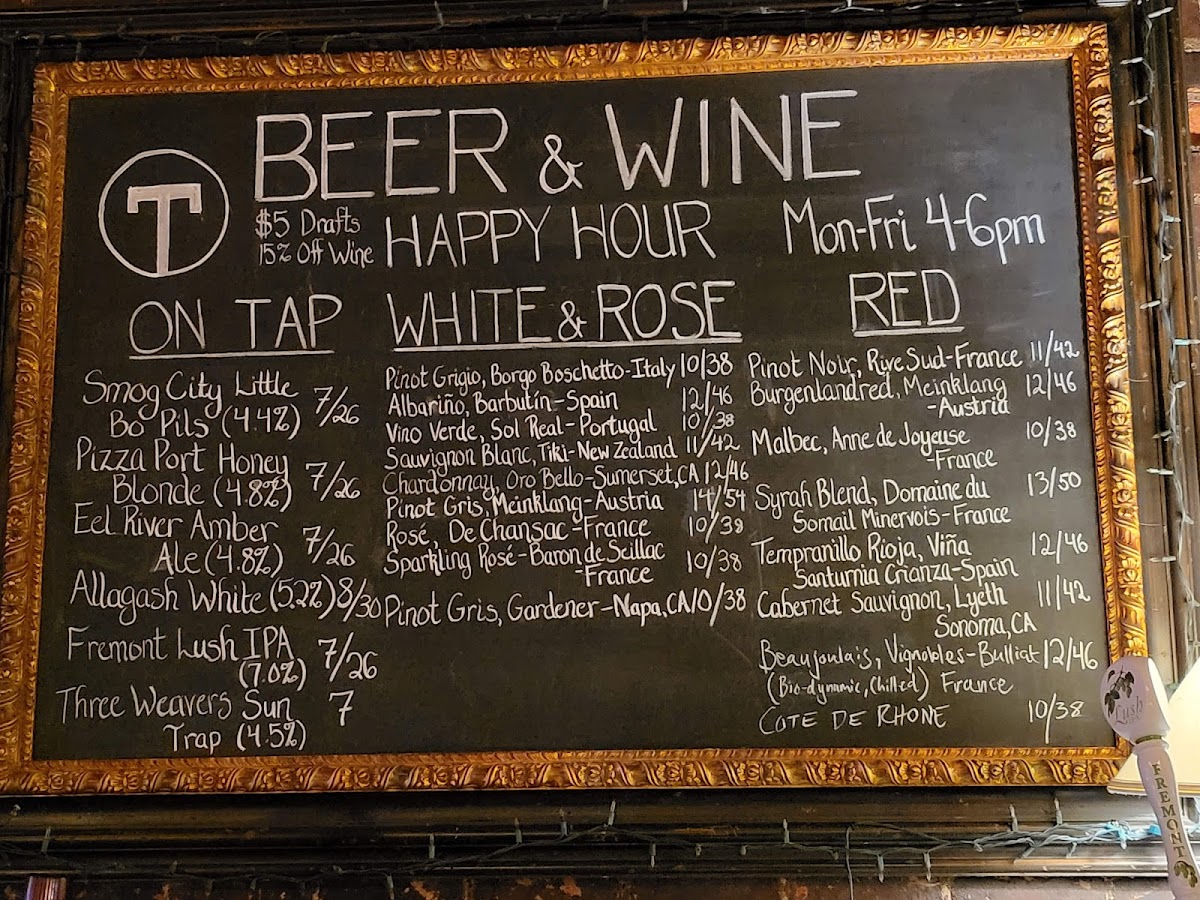 BEER & WINE
T
$5 Drafts
15% Off Wine
HAPPY HOUR
Mon-Fri 4-6pm
ON TAP
Smog City Little 7/26
Bo Pils (4.4%)
Pizza Port Honey 7/26
Blonde (4.8%)
Eel River Amber 7/26
Ale (4.8%)
Allagash White (5.2%) 8/30
Fremont Lush IPA 7/26
(7.0%)
Three Weavers Sun 7
Trap (4.5%)
WHITE & ROSE
Pinot Grigio, Borgo Boschetto-Italy 10/38
Albariño, Barbutín-Spain 12/46
Vino Verde, Sol Real-Portugal 10/38
Sauvignon Blanc, Tiki-New Zealand 11/42
Chardonnay, Oro Bello-Sumerset, CA 12/46
Pinot Gris, Meinklang-Austria 14/54
Rosé, De Chansac-France 10/39
Sparkling Rosé-Baron de Seillac 10/38
-France
Pinot Gris, Gardener-Napa, CA 10/38
RED
Pinot Noir, Rive Sud-France 11/42
Burgenlandred, Meinklang 12/46
-Austria
Malbec, Anne de Joyeuse 10/38
-France
Syrah Blend, Domaine du 13/50
Somail Minervois-France
Tempranillo Rioja, Viña 12/46
Santurnia Crianza-Spain
Cabernet Sauvignon, Lyeth 11/42
Sonoma, CA
Beaujoulais, Vignobles-Bulliat 12/46
(Bio-dynamic, Chilled) France
COTE DE RHONE 10/38
Lush
FREMONT